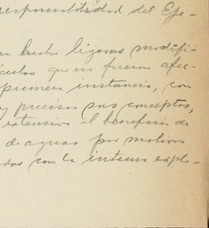 responsabilidad del Eje-
an hecho ligeras modifi-
culos que no fueron afec-
primera instancia, con
y precisos sus conceptos,
extensivo el beneficio de
de aguas por motivo
dos con la intensa explo-